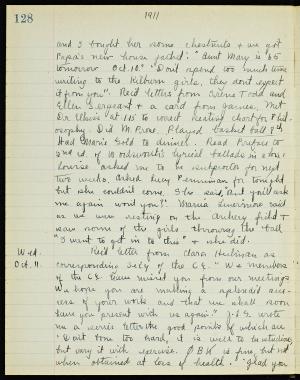 128
1911
and I bought her some chestnuts & we got
Papa's new house jacket. Aunt Mary is 65
tomorrow Oct. 10. "Don't spend too much time
writing to the Kilburn girls, they don't expect
it from you". Rec'd letters from Irene Todd and
Ellen Sergeant & a card from James. Met
Dr. at 1:15 to
Did M. Prose. Played basket ball 8th
Had Marie to dinner. Read Preface to
2nd ed. of Wordsworth's Lyrical Ballads in
Louise asked me to be for next
two weeks. Asked Lucy Penniman for tonight
but she couldn't come. She said, "But you'll ask
me again won't you?" Maria said
as we were resting on the Archery field &
saw some of the girls throwing the ball
"I want to get in to this" & she did.
Wed.
Oct. 11.
Rec'd letter from Clara
corresponding Sec'y of the C.E. - "We members
of the C.E. have missed you from our meetings
We hope you are making a splendid
of your works and that we shall soon
have you present with us again."
me a letter the good points of which are
"Don't too hard, it is well to be studious
but vary it with exercise. ΦBK is fine but not
when obtained at loss of health. Glad you